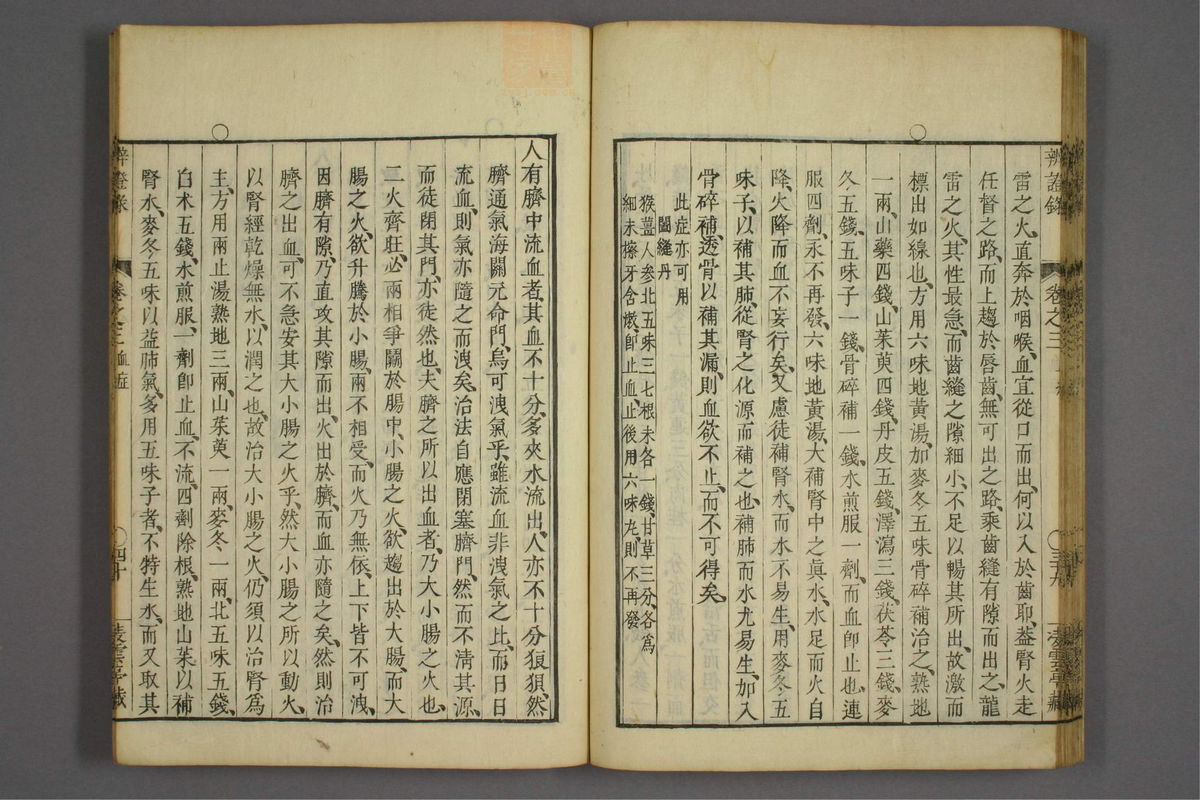 辨證錄 卷之三 三十九 凌雲亭藏
雷之火直奔於咽喉、血宜從口而出、何以入於齒耶、蓋腎火走
任督之路、而上趨於唇齒、無可出之路、乘齒縫有隙而出之、龍
雷之火、其性最急、而齒縫之隙細小、不足以暢其所出、故激而
標出如線也、方用六味地黃湯、加麥冬五味骨碎補治之、熟地
一兩、山藥四錢、山茱萸四錢、丹皮五錢、澤瀉三錢、茯苓三錢、麥
冬五錢、五味子一錢、骨碎補一錢、水煎服、一劑而血即止也、連
服四劑、永不再發、六味地黃湯、大補腎中之真水、水足而火自
降、火降而血不妄行矣、又慮徒補腎水、而水不易生、用麥冬五
味子、以補其肺、從腎之化源而補之也、補肺而水尤易生、加入
骨碎補、透骨以補其漏、則血欲不止、而不可得矣、
此症亦可用
闔縫丹
猴薑人參北五味三七根末各一錢、甘草三分、各為
細末擦牙含漱、即止血、止後用六味丸、則不再發
人有臍中流血者、其血不十分多、夾水流出、人亦不十分狼狽、然
臍通氣海關元命門、烏可洩氣乎、雖流血非洩氣之比、而日日
流血、則氣亦隨之而洩矣、治法自應閉塞臍門、然而不清其源、
而徒閉其門、亦徒然也、夫臍之所以出血者、乃大小腸之火也、
二火齊旺、必兩相爭鬭於腸中、小腸之火、欲趨出於大腸、而大
腸之火、欲升騰於小腸、兩不相受、而火乃無依、上下皆不可洩、
因臍有隙、乃直攻其隙而出、火出於臍、而血亦隨之矣、然則治
臍之出血、可不急安其大小腸之火乎、然大小腸之所以動火、
以腎經乾燥無水、以潤之也、故治大小腸之火、仍須以治腎為
主、方用兩止湯、熟地三兩、山茱萸一兩、麥冬一兩、北五味五錢、
白朮五錢、水煎服、一劑即止血、不流、四劑除根、熟地山茱以補
腎水、麥冬五味以益肺氣、多用五味子者、不特生水、而又取其
辨證錄 卷之三血症 四十 凌雲亭藏